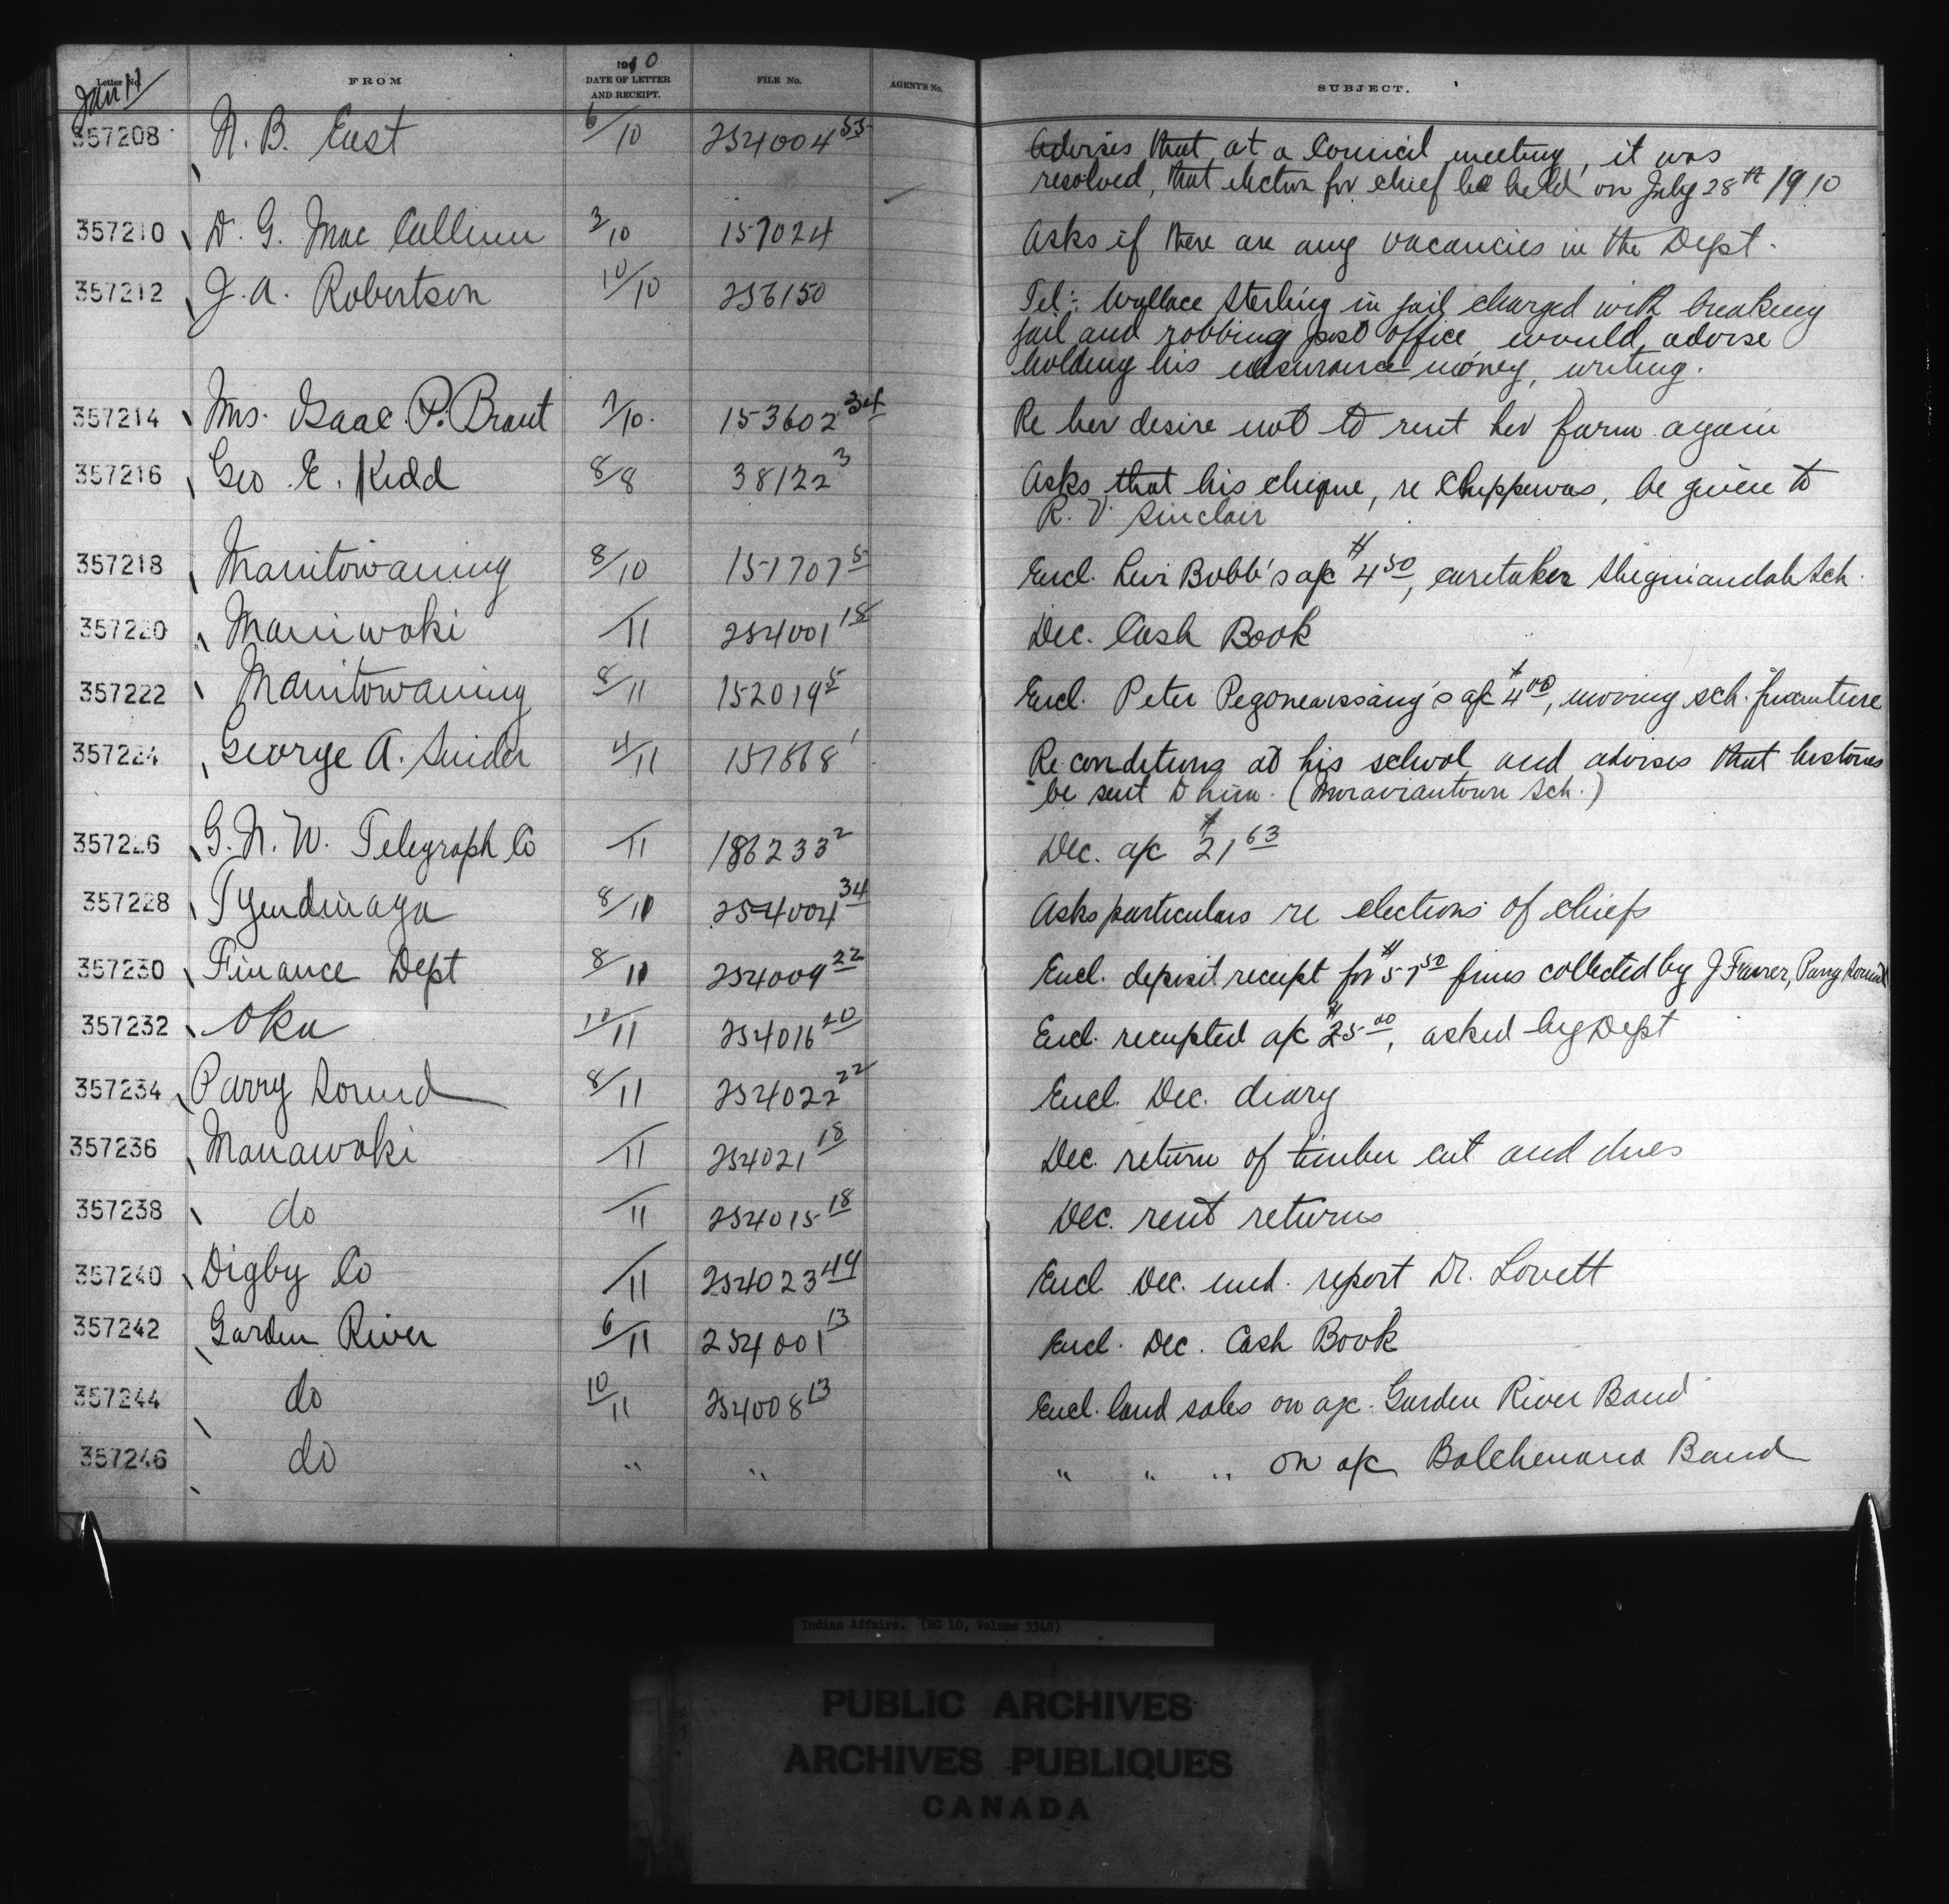 Letter No. FROM 1910 DATE OF LETTER AND RECEIPT. FILE No. AGENT'S No. SUBJECT.
Jan 11
357208 N. B. East 6/10 254004 53 Advises that at a Council meeting, it was
resolved, that election for chief be held on July 28th 1910
357210 D. G. Mac Callum 3/10 157024 Asks if there are any vacancies in the Dept.
357212 J. A. Robertson 10/10 256150 Tel:- Wallace Sterling in jail charged with breaking
jail and robbing post office would advise
holding his insurance money, writing.
357214 Mrs. Isaac P. Brant 7/10. 153602 34 Re her desire not to rent her farm again
357216 Geo E. Kidd 8/8 38122 3 Asks that his cheque, re Chippewas, be given to
R. V. Sinclair
357218 Manitowaning 8/10 151707 5 Encl. Levi Bobb's a/c $4 50, caretaker Sheguiandah Sch.
357220 Maniwoki /11 254001 18 Dec. Cash Book
357222 Manitowaning 8/11 152019 5 Encl. Peter a/c $4 00, moving sch. furniture
357224 George A. Snider 4/11 157868 1 Re conditions at his school and advises that histories
be sent to him. (Moraviantown Sch.)
357226 G. N. W. Telegraph Co /11 186233 2 Dec. a/c $21 63
357228 Tyendinaga 8/11 254004 34 Asks particulars re elections of chiefs
357230 Finance Dept 8/11 254009 22 Encl. deposit receipt for $57 50 fines collected by J Farrer, Parry Sound
357232 Oka 10/11 254016 20 Encl. receipted a/c $25 00, asked by Dept
357234 Parry Sound 8/11 254022 22 Encl. Dec. diary
357236 Manawoki /11 254021 18 Dec. return of timber cut and dues
357238 do /11 254015 18 Dec. rent returns
357240 Digby Co /11 254023 44 Encl. Dec. med. report Dr. Lovett
357242 Garden River 6/11 254001 13 Encl. Dec. Cash Book
357244 do 10/11 254008 13 Encl. land sales on a/c. Garden River Band
357246 do " " " " " on a/c Batchewana Band
Indian Affairs. (RG 10, Volume 3348)
PUBLIC ARCHIVES
ARCHIVES PUBLIQUES
CANADA